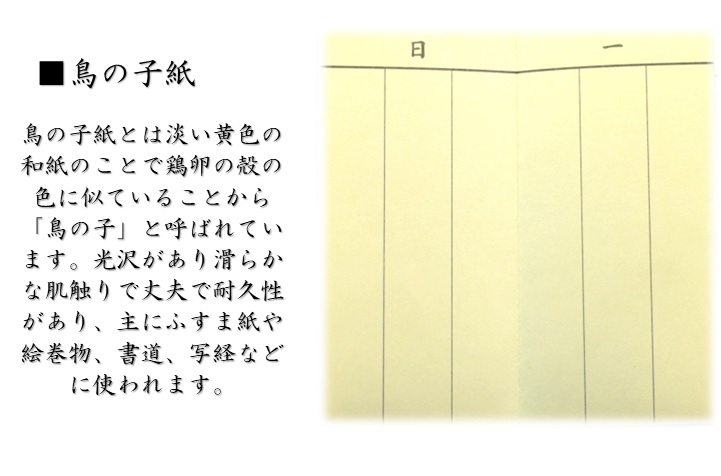 ■鳥の子紙
鳥の子紙とは淡い黄色の
和紙のことで鶏卵の殻の
色に似ていることから
「鳥の子」と呼ばれてい
ます。光沢があり滑らか
な肌触りで丈夫で耐久性
があり、主にふすま紙や
絵巻物、書道、写経など
に使われます。
日 一